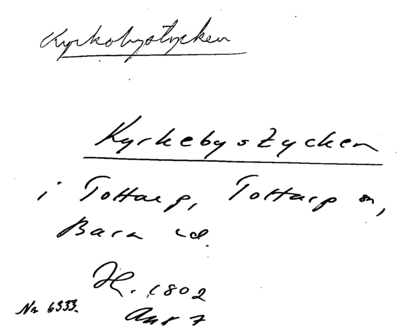 Kyrkobystycken
Kyrkebystycken
i Tottarp, Tottarp sn,
Bara hd.
H. 1802
Nr 6333.
Akt 7